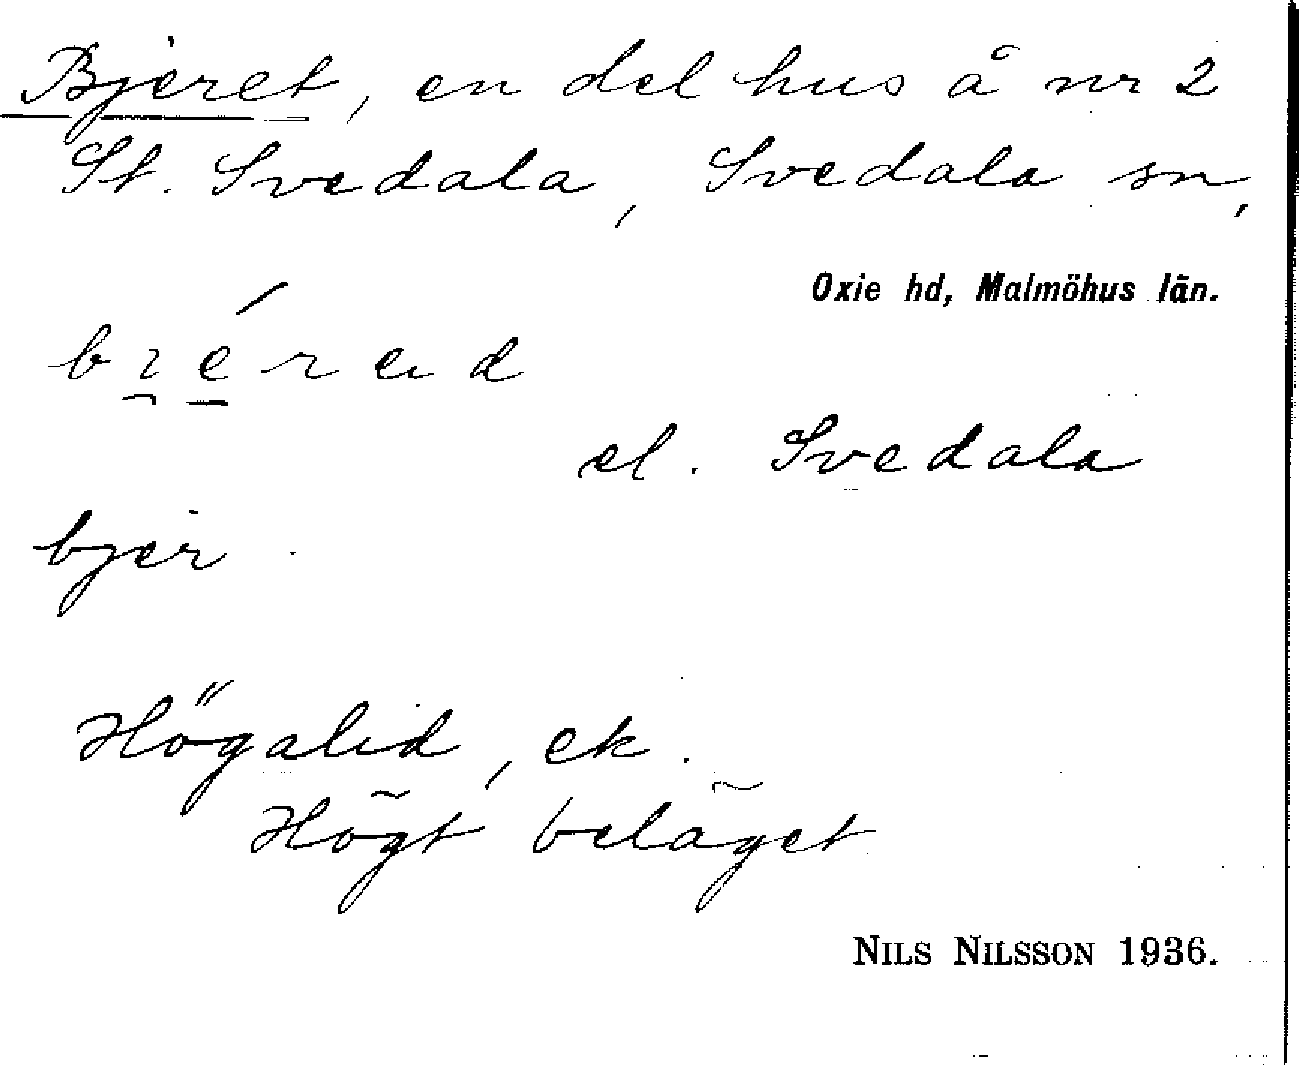 Bjeret, en del hus å nr 2
St. Svedala, Svedala sn,
Oxie hd, Malmöhus län.
el. Svedala
bjer
Högalid, ek.
Högt beläget
NILS NILSSON 1936.